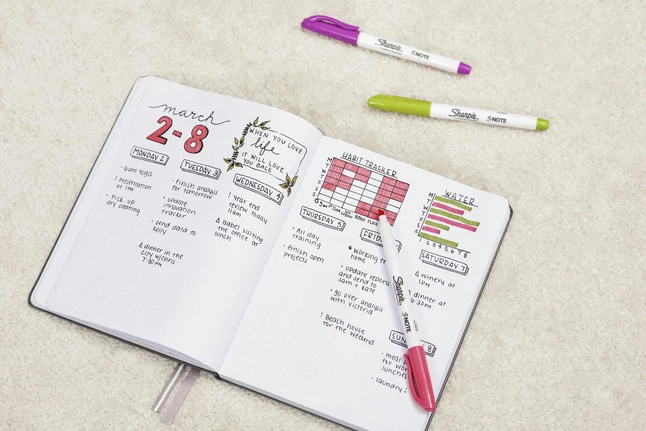 Sharpie S·NOTE
Sharpie S·NOTE
march
2-8
WHEN YOU LOVE
life
IT WILL LOVE
YOU BACK
MONDAY 2
· 6am yoga
! Presentation
at 1pm
· Pick up
dry cleaning
TUESDAY 3
· finish analysis
for tomorrow
· update
innovation
tracker
· send data to
Δ dinner in the
city
7:30 PM
WEDNESDAY 4
! Year end
review today
11am
Δ Isabel visiting
the office at
lunch
HABIT TRACKER
M
T
W
T
F
S
S
WATER
M
T
W
T
F
S
S
1 2 3 4 5 6 7 8
THURSDAY 5
· All day
training
· finish open
projects
FRIDAY
Working
home
· update reports
and send to
Sam + Kate
· go over analysis
with Victoria
! Beach house
for the weekend
SATURDAY 7
Δ winery at
1pm
Δ dinner at
Sharpie S·NOTE
8
· meal
for
lunches
· laundry